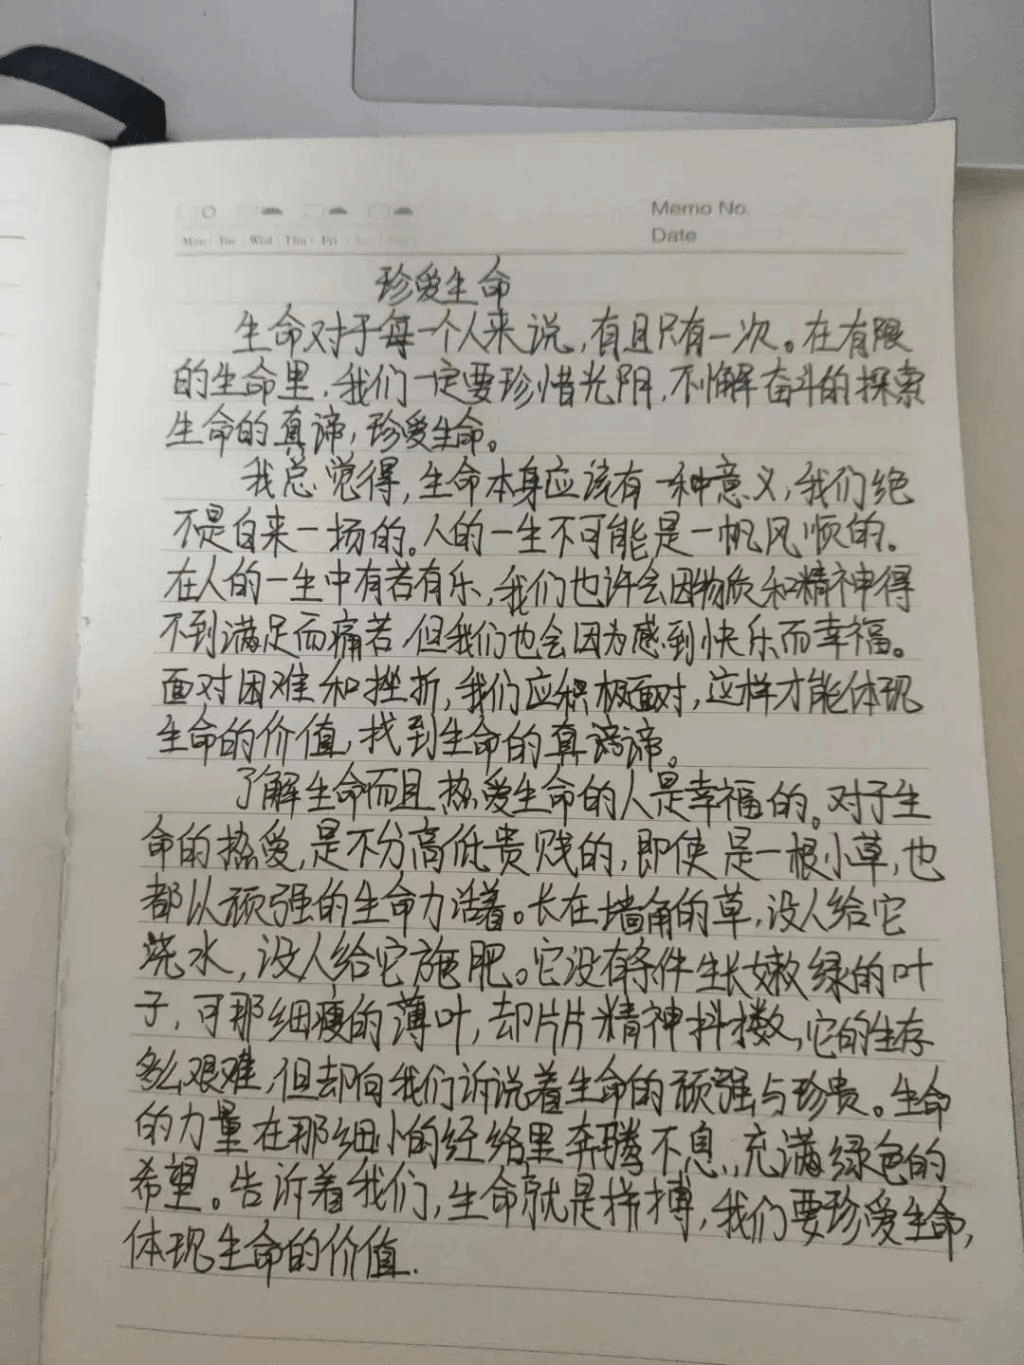 Memo No.
Mon Tue Wed Thu Fri
Date
珍爱生命
生命对于每一个人来说,有且只有一次。在有限
的生命里,我们一定要珍惜光阴,不懈奋斗的探索
生命的真谛,珍爱生命。
我总觉得,生命本身应该有一种意义,我们绝
不是白来一场的。人的一生不可能是一帆风顺的。
在人的一生中有苦有乐,我们也许会因物质和精神得
不到满足而痛苦,但我们也会因为感到快乐而幸福。
面对困难和挫折,我们应积极面对,这样才能体现
生命的价值,找到生命的真谛谛。
了解生命而且热爱生命的人是幸福的。对于生
命的热爱,是不分高低贵贱的,即使是一根小草,也
都以顽强的生命力活着。长在墙角的草,没人给它
浇水,没人给它施肥。它没有条件生长嫩绿的叶
子,可那细瘦的薄叶,却片片精神抖擞,它的生存
多么艰难,但却向我们诉说着生命的顽强与珍贵。生命
的力量在那细小的经络里奔腾不息,充满绿色的
希望。告诉着我们,生命就是拼搏,我们要珍爱生命,
体现生命的价值.